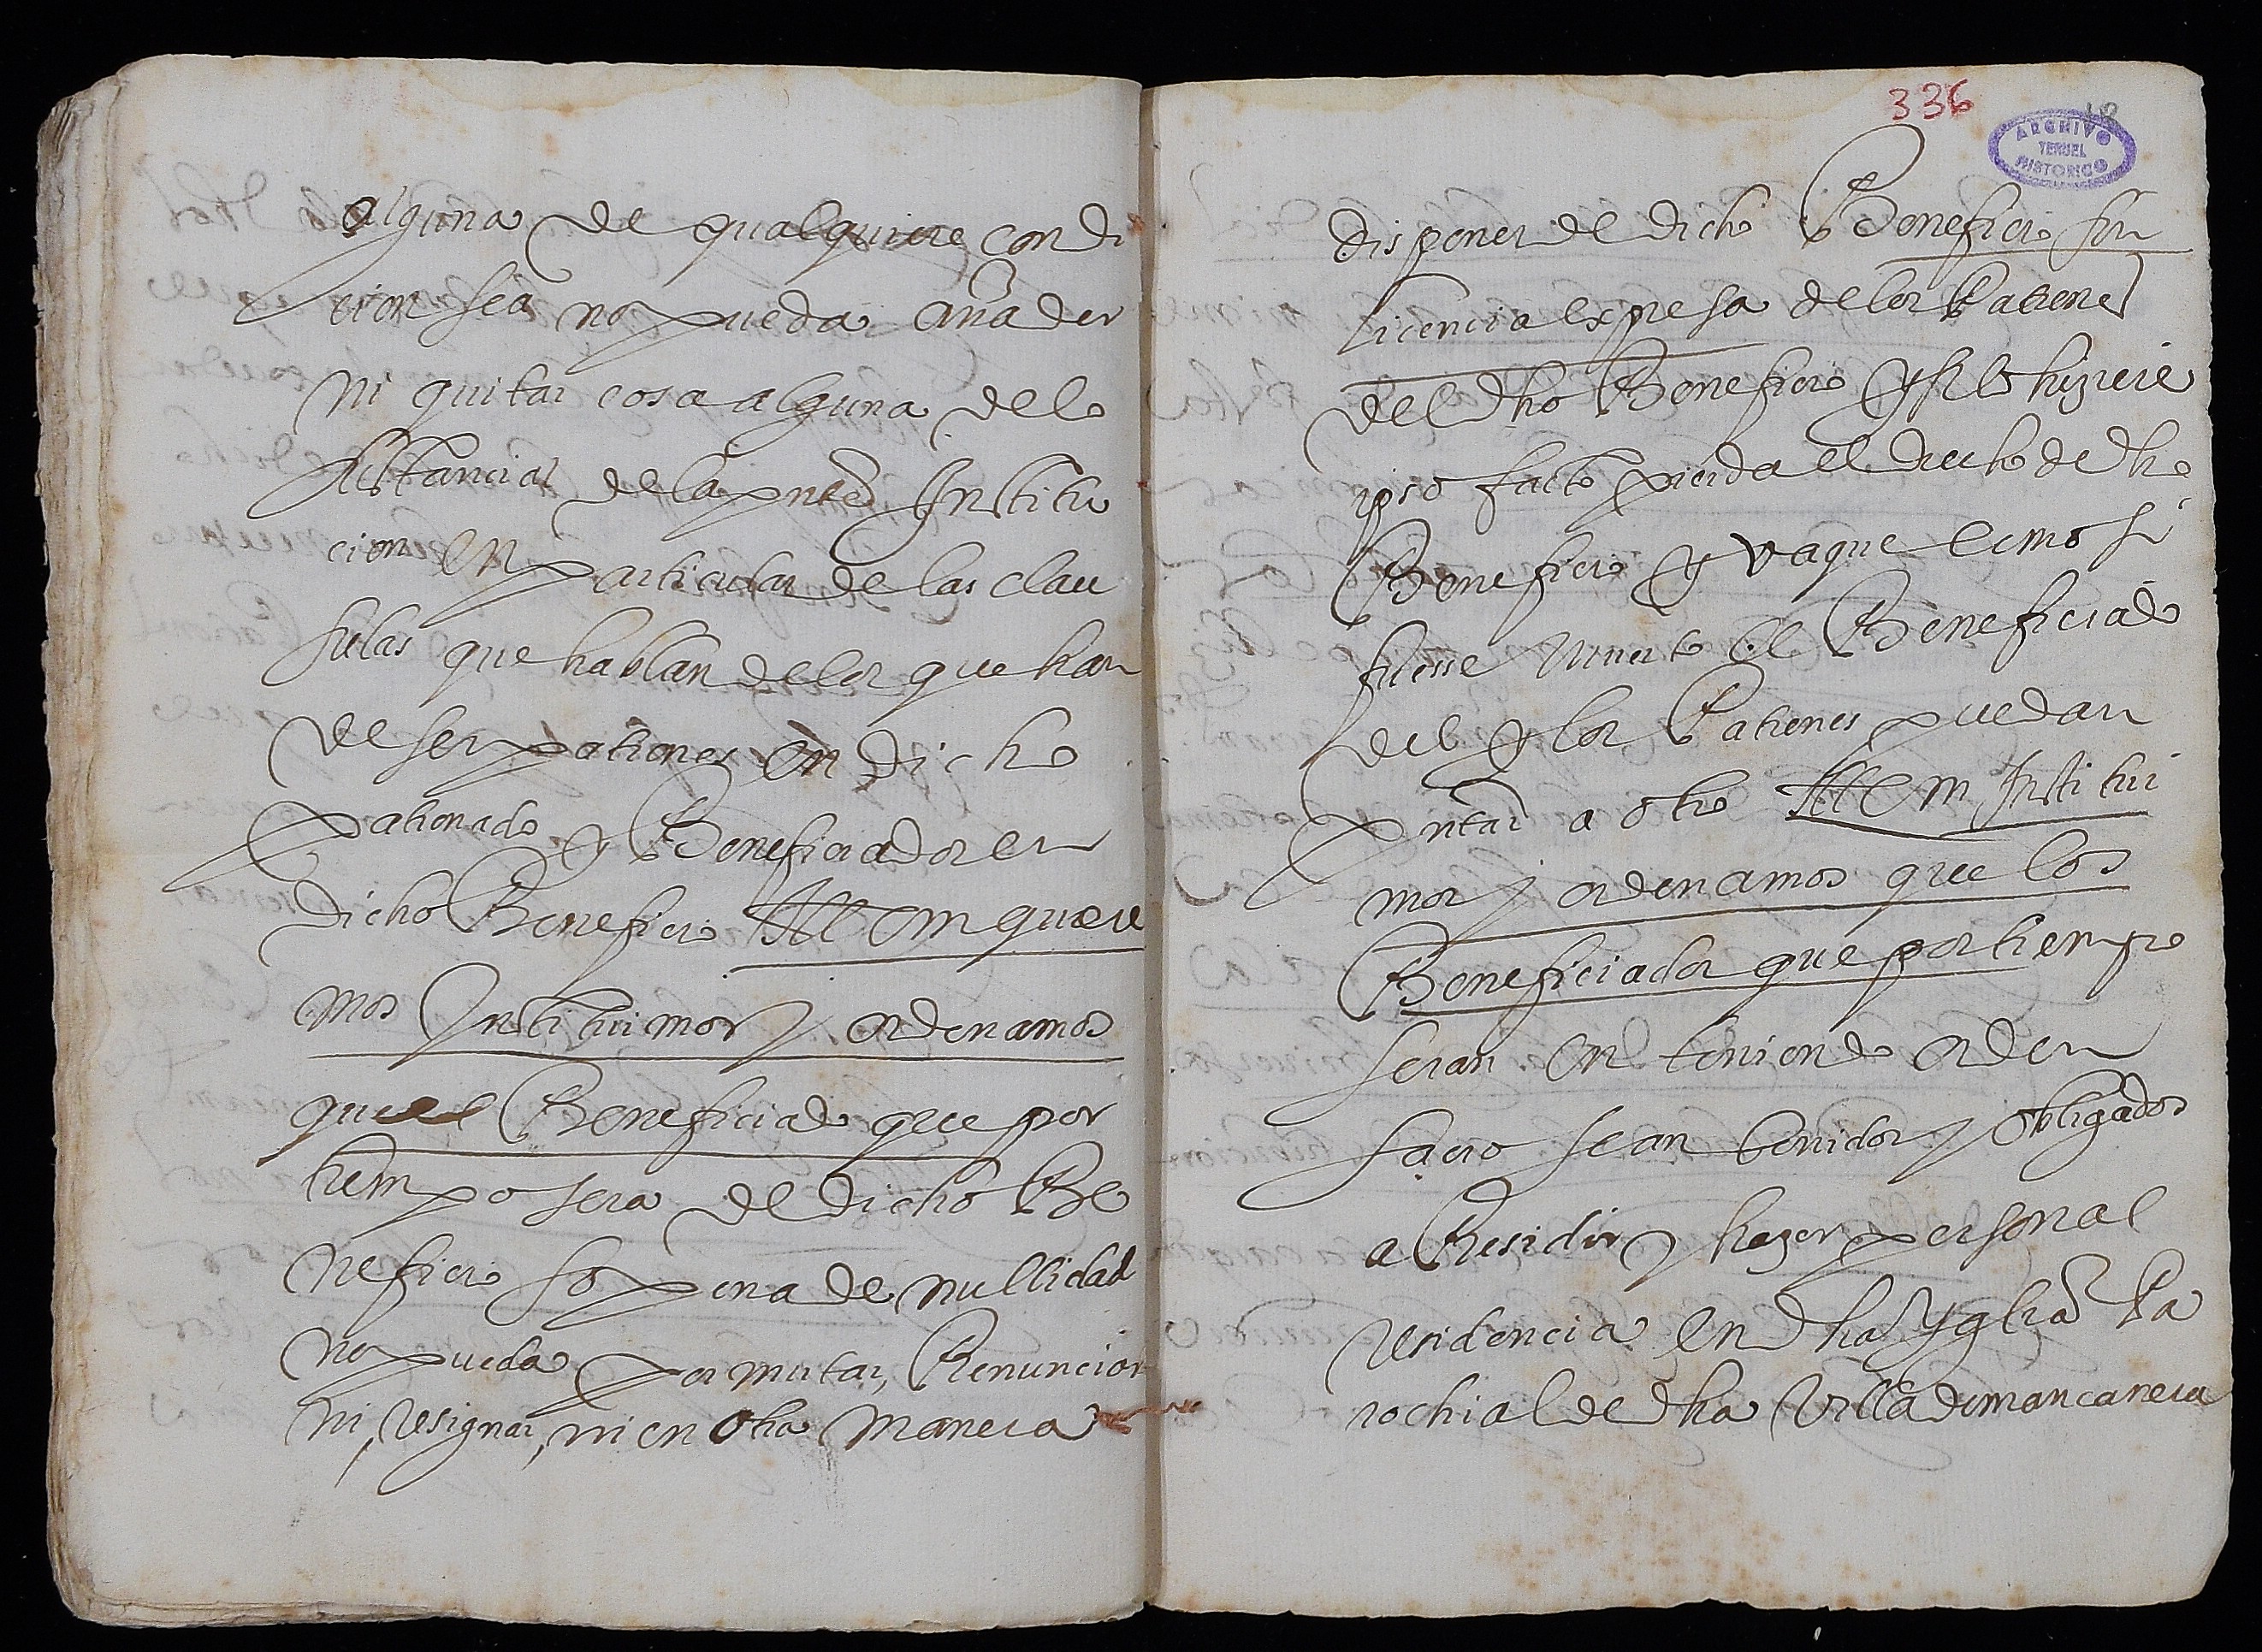 alguna de qualquiere condi
cion sea no pueda añader
ni quitar cosa alguna de lo
sustancial de la pnte Institu
cion en particular de las clau
sulas que hablan de los que han
de ser patrones en dicho
patronado y Beneficiados en
dicho Beneficio Item quere
mos Instituimos y ordenamos
que el Beneficiado que por
tiempo sera de dicho Be
neficio so pena de nullidad
no pueda permutar, Renunciar
ni, resignar, ni en otra manera
336
ARCHIVO
TERUEL
HISTORICO
disponer de dicho Beneficio sin
licencia expresa de los Patrones
del dho Beneficio y si lo hiziere
ipso facto pierda el drecho de dho
Beneficio y vaque como si
fuesse muerto el Beneficiado
del y los Patrones puedan
pntar a otro Item Institui
mos y ordenamos que los
Beneficiados que por tiempo
seran en teniendo orden
sacro sean tenidos y obligados
a Residir y hazer personal
residencia en dha Yglia Pa
rochial de dha Villa de mancanera